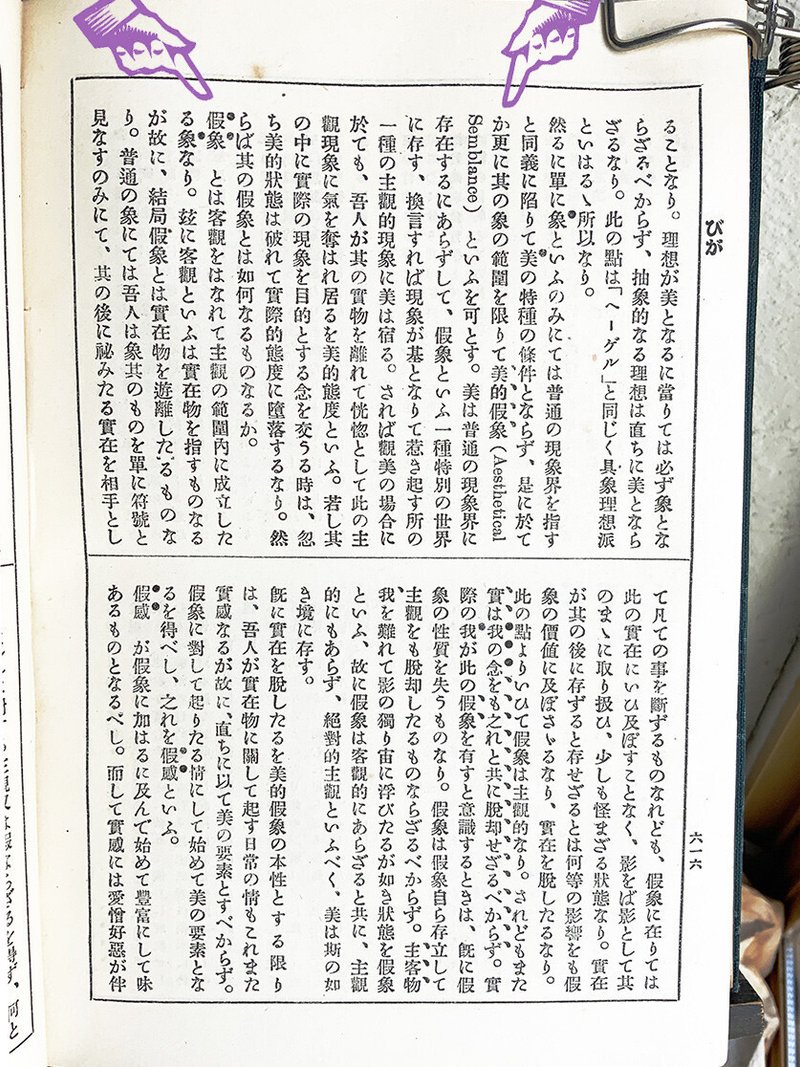 びが
六一六
ることなり。理想が美となるに當りては必ず象とな
らざるべからず、抽象的なる理想は直ちに美となら
ざるなり。此の點は「ヘーゲル」と同じく具象理想派
といはるヽ所以なり。
然るに單に象といふのみにては普通の現象界を指す
と同義に陷りて美の特種の條件とならず、是に於て
か更に其の象の範圍を限りて美的假象(Aesthetical
Semblance) といふを可とす。美は普通の現象界に
存在するにあらずして、假象といふ一種特別の世界
に存す、換言すれば現象が基となりて惹き起す所の
一種の主觀的現象に美は宿る。されば觀美の場合に
於ても、吾人が其の實物を離れて恍惚として此の主
觀現象に氣を奪はれ居るを美的態度といふ。若し其
の中に實際の現象を目的とする念を交うる時は、忽
ち美的狀態は破れて實際的態度に墮落するなり。然
らば其の假象とは如何なるものなるか。
假象 とは客觀をはなれて主觀の範圍內に成立した
る象なり。玆に客觀といふは實在物を指すものなる
が故に、結局假象とは實在物を遊離したるものな
り。普通の象にては吾人は象其のものを單に符號と
見なすのみにて、其の後に祕みたる實在を相手とし
て凡ての事を斷ずるものなれども、假象に在りては
此の實在にいひ及ぼすことなく、影をば影として其
のまヽに取り扱ひ、少しも怪まざる狀態なり。實在
が其の後に存ずると存せざるとは何等の影響をも假
象の價値に及ぼさヾるなり、實在を脫したるなり。
此の點よりいひて假象は主觀的なり。されどもまた
實は我の念をも之れと共に脫却せざるべからず。實
際の我が此の假象を有すと意識するときは、旣に假
象の性質を失うものなり。假象は假象自ら存立して
主觀をも脫却したるものならざるべからず。主客物
我を離れて影の獨り宙に浮びたるが如き狀態を假象
といふ、故に假象は客觀的にあらざると共に、主觀
的にもあらず、絕對的主觀といふべく、美は斯の如
き境に存す。
旣に實在を脫したるを美的假象の本性とする限り
は、吾人が實在物に關して起す日常の情もこれまた
實感なるが故に、直ちに以て美の要素とすべからず。
假象に對して起りたる情にして始めて美の要素とな
るを得べし、之れを假感といふ。
假感 が假象に加はるに及んで始めて豐富にして味
あるものとなるべし。而して實感には愛憎好惡が伴